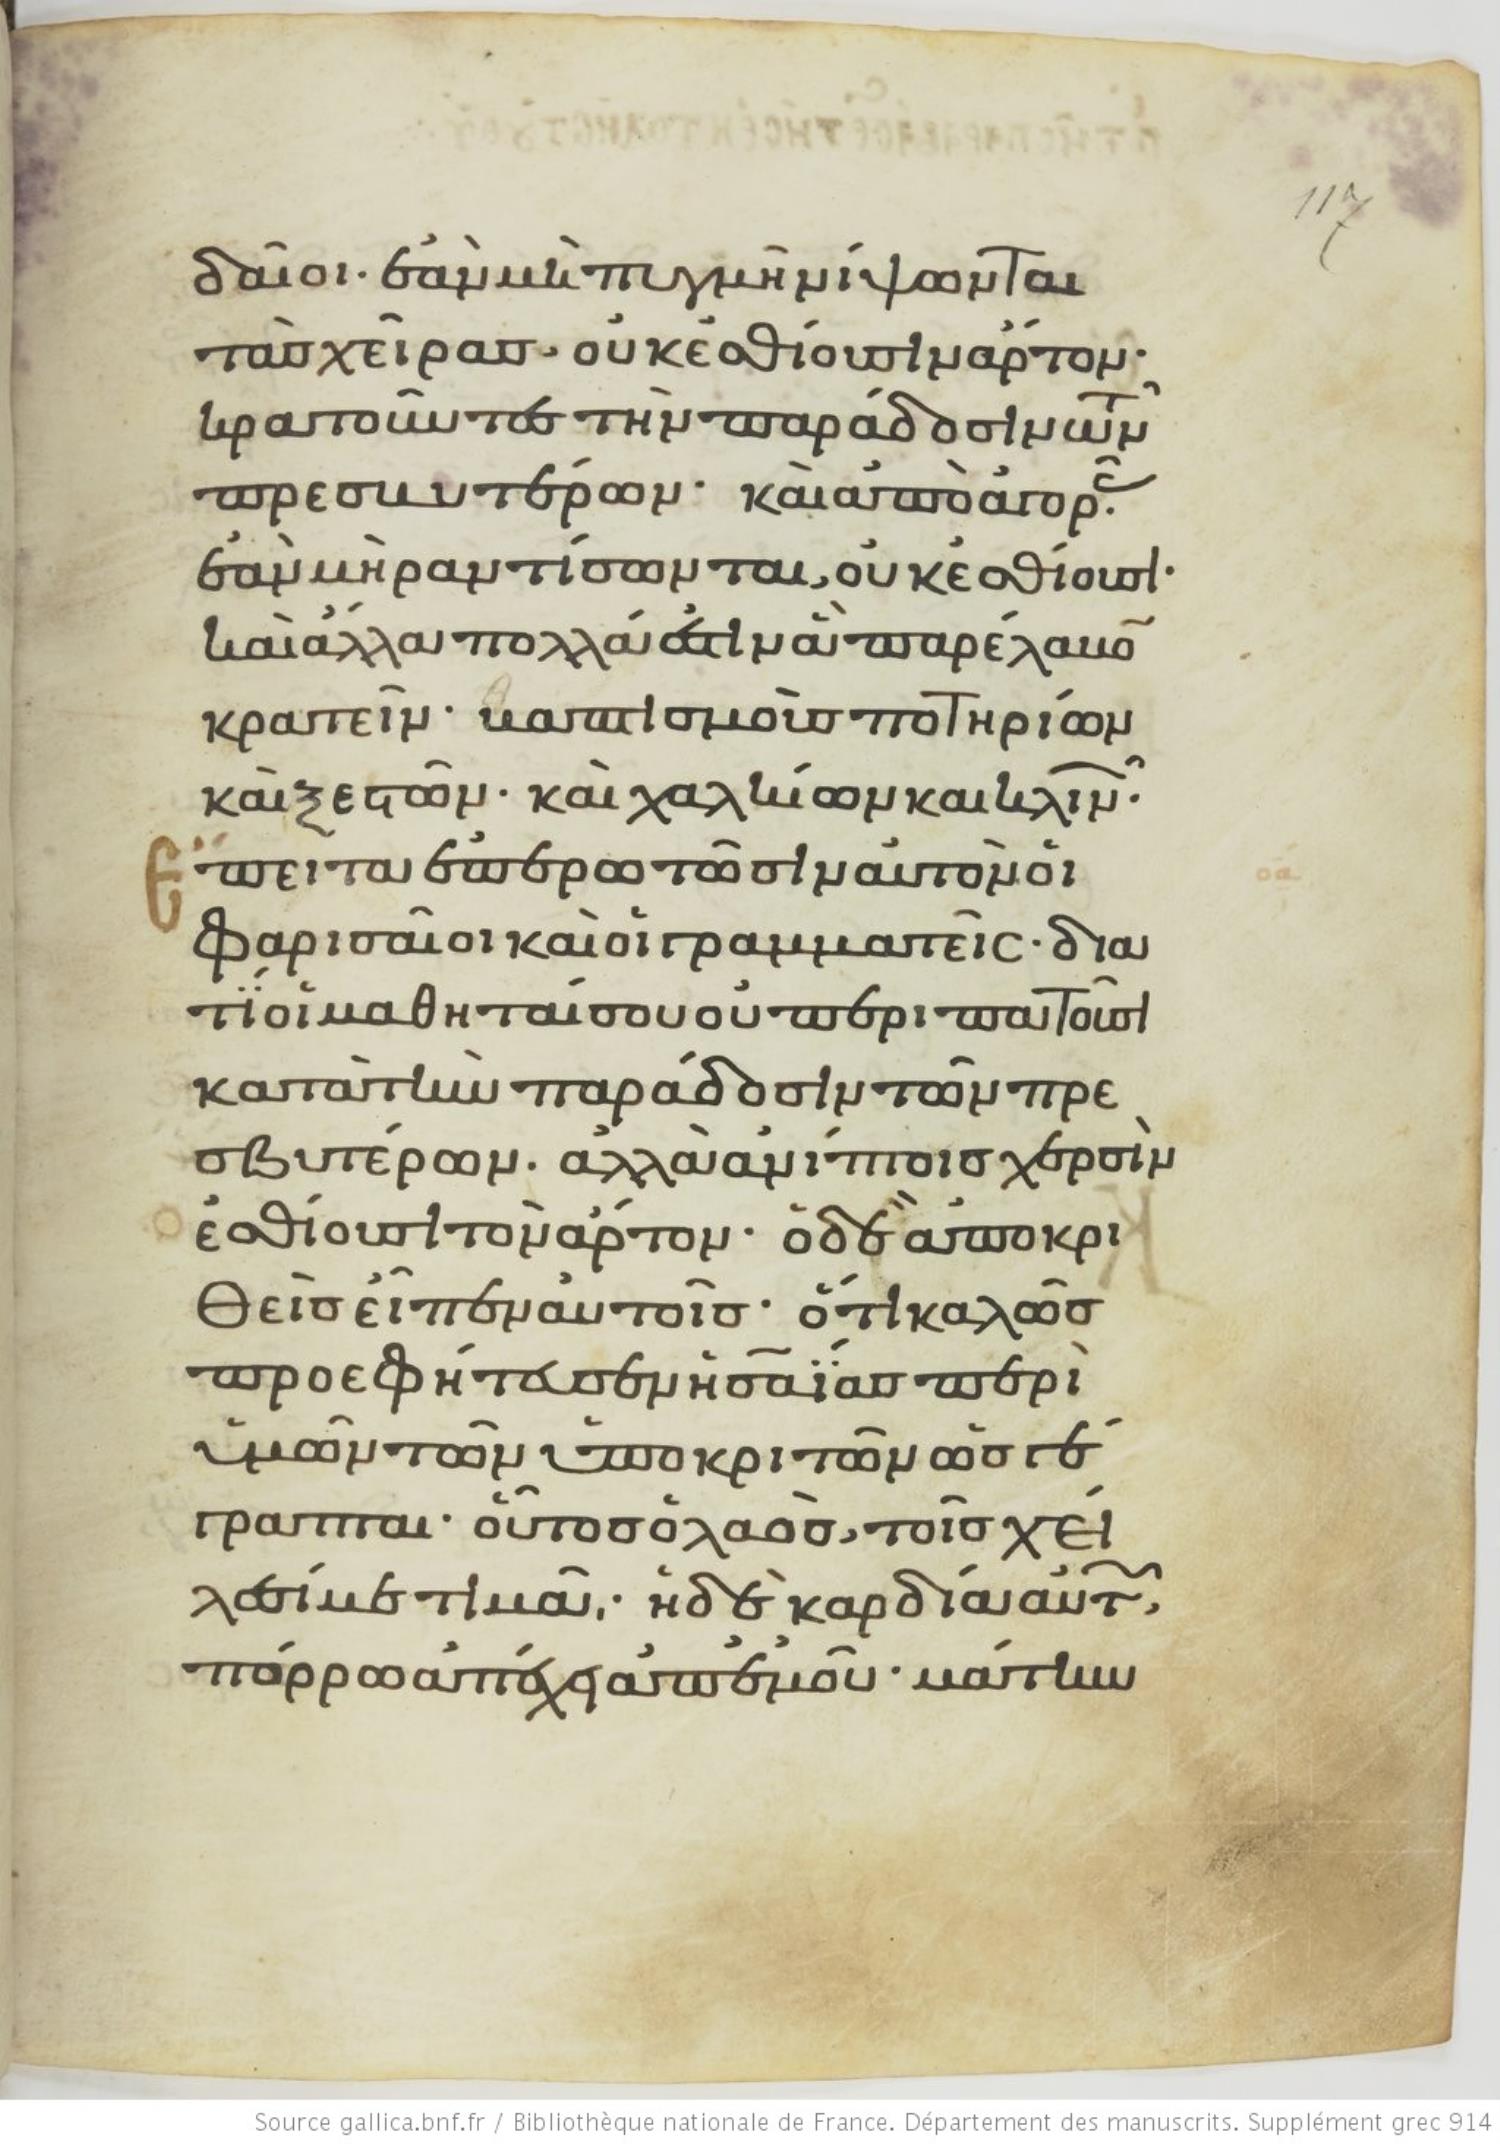 117
δαῖοι· ἐὰν μὴ πυγμῆ νίψωνται
τὰς χεῖρας, οὐκ ἐσθίουσιν ἄρτον·
κρατοῦντες τὴν παράδοσιν τῶν
πρεσβυτέρων· καὶ ἀπὸ ἀγορ
ἐὰν μὴ ραντίσωνται, οὐκ ἐσθίουσι·
καὶ ἄλλα πολλά ἐστιν ἃ παρέλαβο
κρατεῖν· βαπτισμοὺς ποτηρίων
καὶ ξεστῶν· καὶ χαλκίων και κλιν·
Ἔπειτα ἐπερωτῶσιν αὐτὸν οἱ
φαρισαῖοι καὶ οἱ γραμματεῖς· δια
τί οἱ μαθηταί σου οὐ περιπατοῦσι
κατὰ τὴν παράδοσιν τῶν πρε
σβυτέρων· ἀλλὰ ἀνίπτοις χερσὶν
ἐσθίουσι τὸν ἄρτον· ὁ δὲ ἀποκρι
θεὶς εἶπεν αὐτοῖς· ὅτι καλῶς
προεφήτευσεν ἠσαΐας περὶ
ὑμῶν τῶν ὑποκριτῶν ὡς γέ
γραπται· οὗτος ὁ λαὸς, τοῖς χεί
λεσί με τιμᾶ,· ἡ δὲ καρδία αὐτ,
πόρρω ἀπέχει ἀπ' ἐμοῦ· μάτην
οα
Source gallica.bnf.fr / Bibliothèque nationale de France. Département des manuscrits. Supplément grec 914